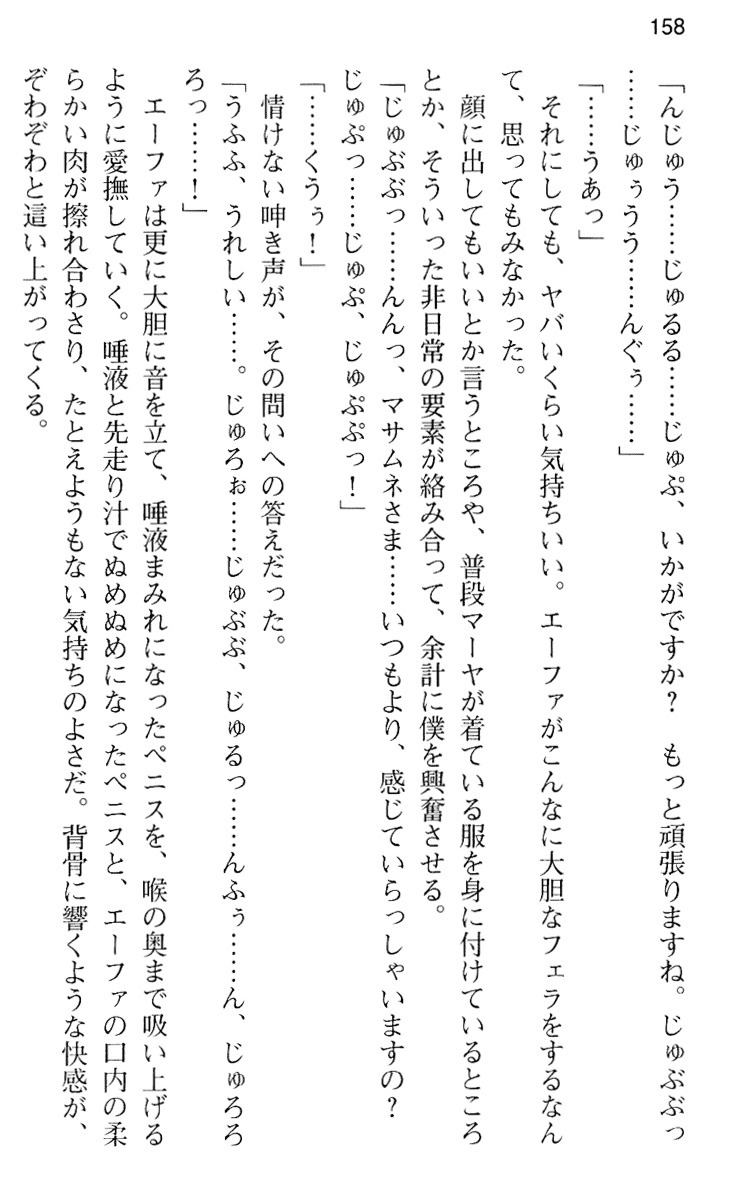 158
「んじゅう……じゅるる……じゅぷ、いかがですか？　もっと頑張りますね。じゅぶぶっ
……じゅぅうう……んぐぅ……」
「……うあっ」
　それにしても、ヤバいくらい気持ちいい。エーファがこんなに大胆なフェラをするなん
て、思ってもみなかった。
　顔に出してもいいとか言うところや、普段マーヤが着ている服を身に付けているところ
とか、そういった非日常の要素が絡み合って、余計に僕を興奮させる。
「じゅぶぶっ……んんっ、マサムネさま……いつもより、感じていらっしゃいますの？
じゅぷっ……じゅぷ、じゅぷぷっ！」
「……くうぅ！」
　情けない呻き声が、その問いへの答えだった。
「うふふ、うれしい……。じゅろぉ……じゅぶぶ、じゅるっ……んふぅ……ん、じゅろろ
ろっ……！」
　エーファは更に大胆に音を立て、唾液まみれになったペニスを、喉の奥まで吸い上げる
ように愛撫していく。唾液と先走り汁でぬめぬめになったペニスと、エーファの口内の柔
らかい肉が擦れ合わさり、たとえようもない気持ちのよさだ。背骨に響くような快感が、
ぞわぞわと這い上がってくる。